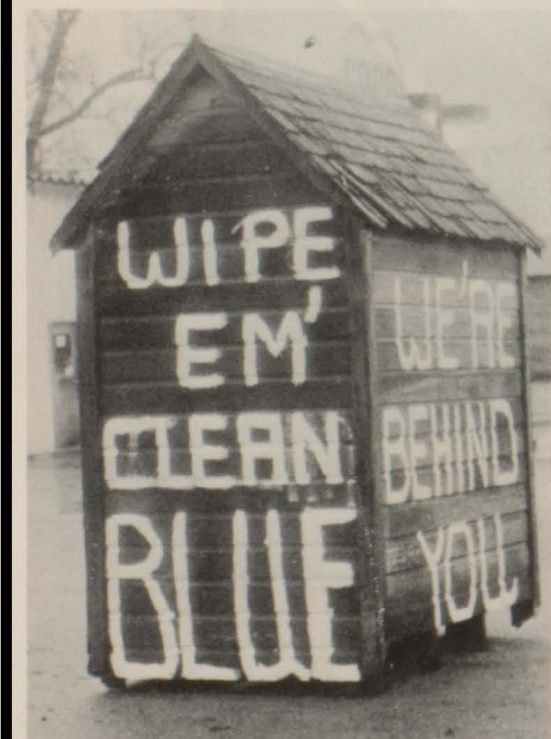 WIPE
EM'
CLEAN
BLUE
WE'RE
BEHIND
YOU